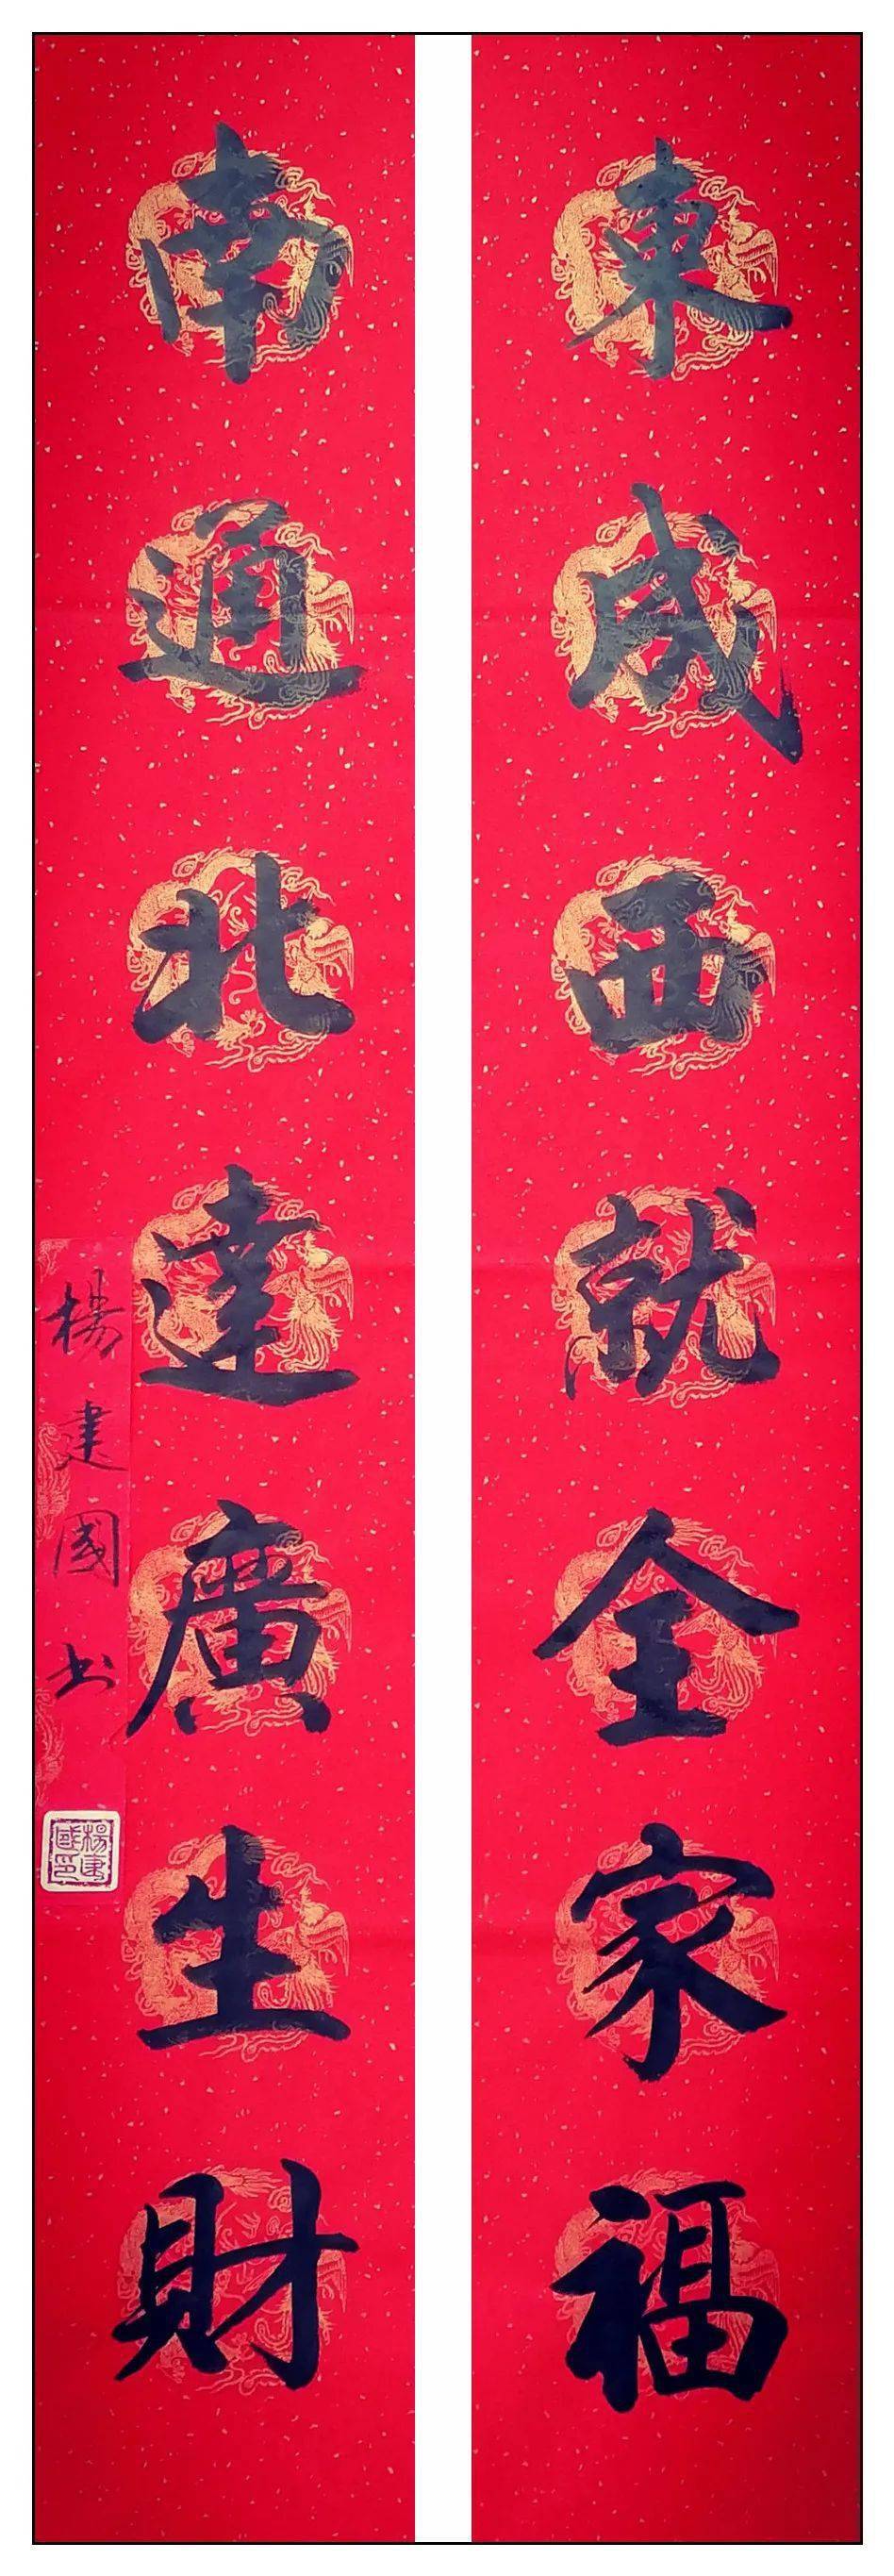 東成西就全家福
南通北達廣生財
楊建國书
楊建國印